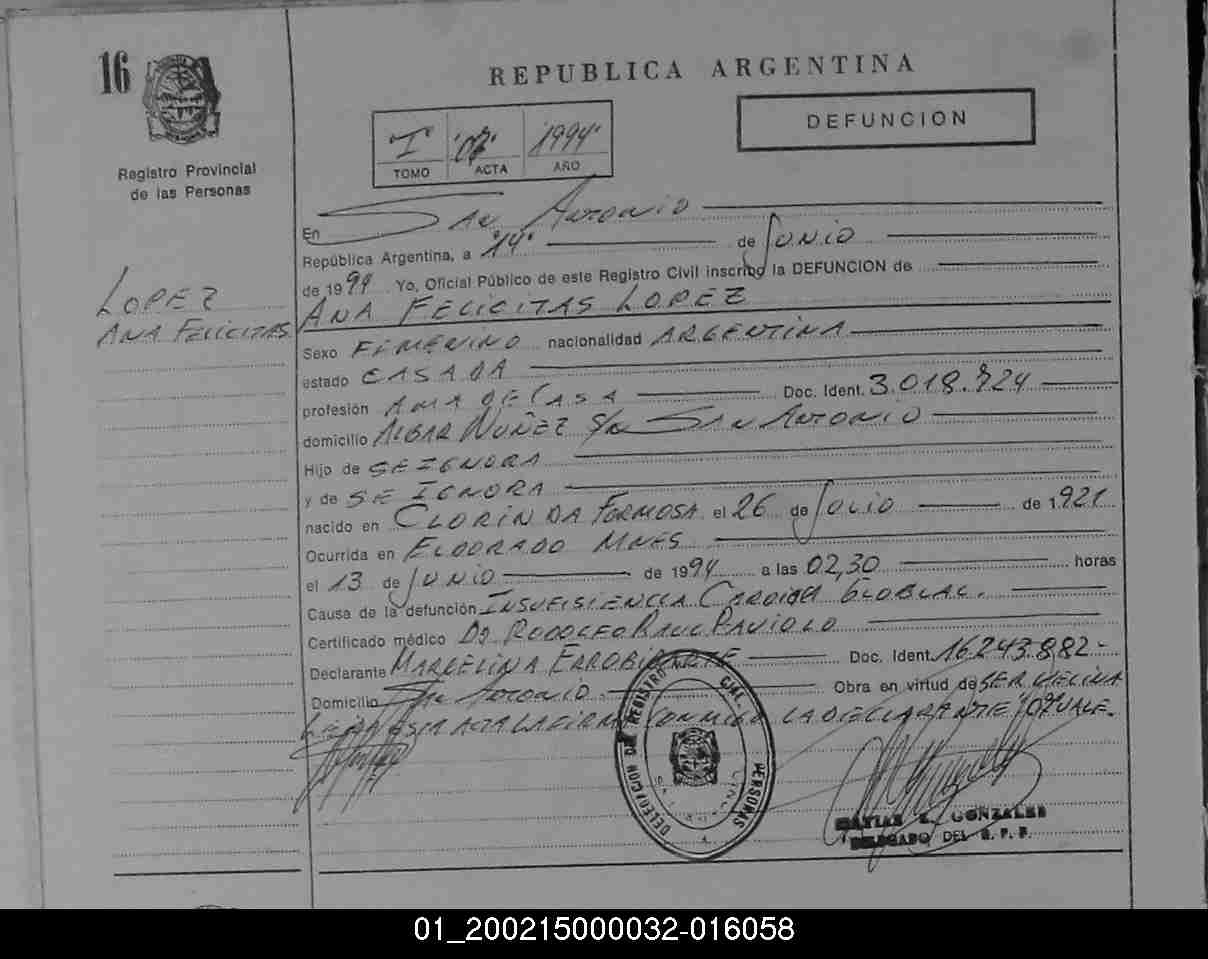 16
REPUBLICA ARGENTINA
DEFUNCION
I '07' '1994'
TOMO ACTA AÑO
Registro Provincial
de las Personas
LOPEZ
ANA FELICITAS
En SAN ANTONIO
República Argentina, a "14" de JUNIO
de 1994 Yo, Oficial Público de este Registro Civil inscribo la DEFUNCION de
ANA FELICITAS LOPEZ
Sexo FEMENINO nacionalidad ARGENTINA
estado CASADA
profesión AMA DE CASA Doc. Ident. 3.018.724
domicilio ALBAR NUÑEZ S/N SAN ANTONIO
Hijo de SE IGNORA
y de SE IGNORA
nacido en CLORINDA FORMOSA el 26 de JULIO de 1921
Ocurrida en ELDORADO MNES
el 13 de JUNIO de 1994 a las 02,30 horas
Causa de la defunción INSUFISIENCIA CARDIACA GLOBLAL.
Certificado médico DR RODOLFO RAUL PAVIOLO
Declarante MARCELINA ERROBIDARTE Doc. Ident. 16.243.882-
Domicilio SAN ANTONIO Obra en virtud de SER VECINA
LEIDA ESTA ACTA LA FIRMA CONMIGO LA DECLARANTE VALE.
DELEGACION DE REGISTRO PERSONAS
GONZALEZ
DELEGADO DEL R. P. P.
01_200215000032-016058